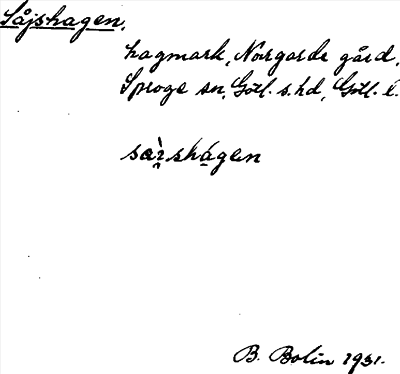 Såjshagen.
hagmark, Norgarde gård,
Sproge sn, Gotl. s. hd, Gotl. l.
sàrshágen
B. Bolin 1931.